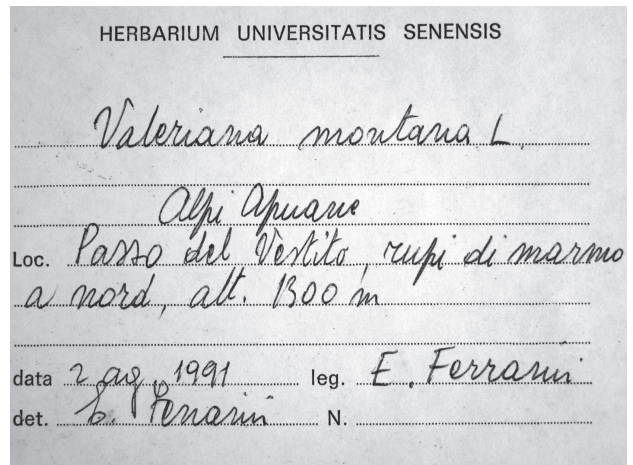 HERBARIUM UNIVERSITATIS SENENSIS
Valeriana montana L.
Alpi Apuane
Loc. Passo del Vestito, rupi di marmo
a nord, alt. 1300 m
data 2 ag. 1991 leg. E. Ferrarini
det. E. Ferrarini N.